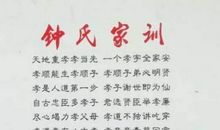 钟氏家训
天地重孝孝当先 一个孝字全家安
孝顺能生孝顺子 孝顺子弟必明贤
孝是人道第一步 孝子谢世即为仙
自古忠臣多孝子 君选贤臣举孝廉
尽心竭力孝父母 孝道不独讲吃穿